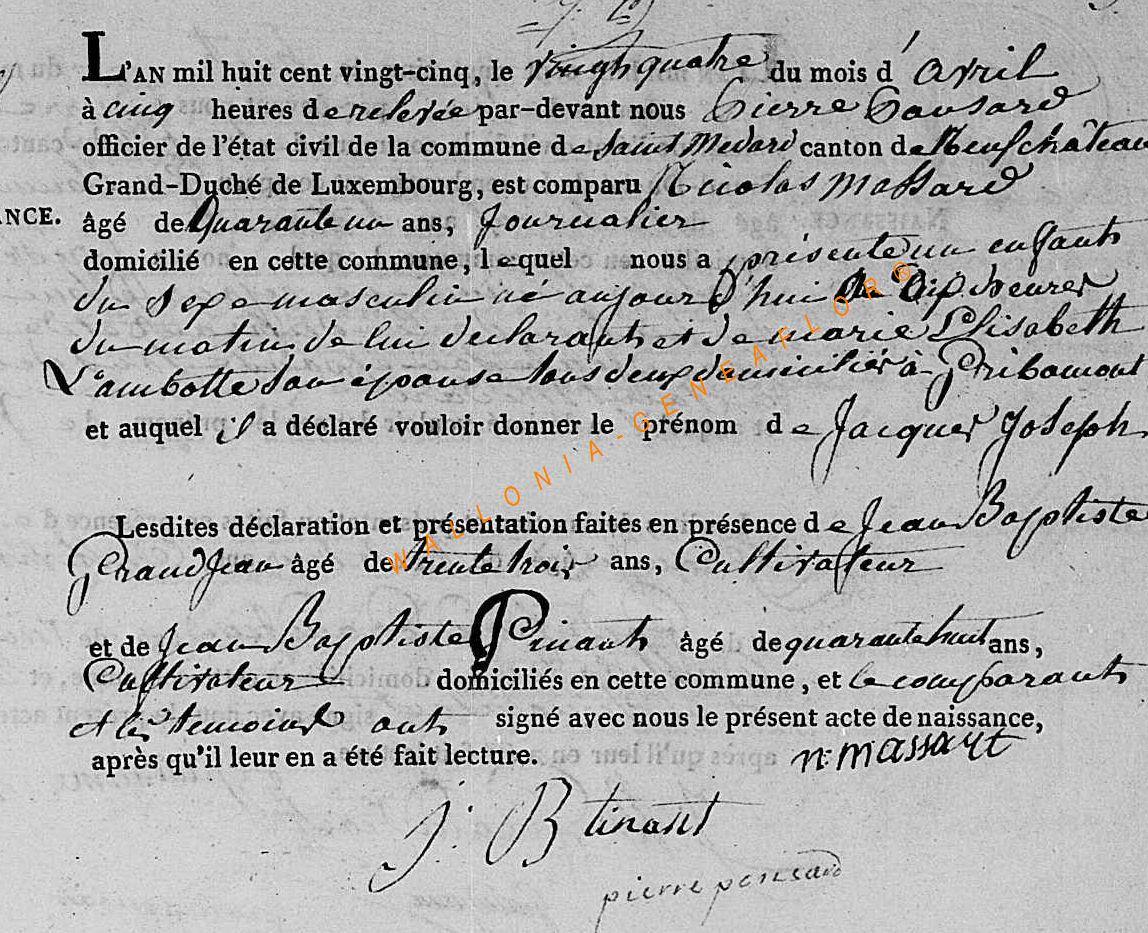 L'AN mil huit cent vingt-cinq, le vingt quatre du mois d'avril
à cinq heures de relevée par-devant nous Pierre Ponsard
officier de l'état civil de la commune de Saint Medard canton de Neufchâteau
Grand-Duché de Luxembourg, est comparu Nicolas Massard
ANCE. âgé de quarante un ans, Journalier
domicilié en cette commune, lequel nous a présenté un enfant
du sexe masculin né aujourd'hui a dix heures
du matin de lui declarant et de marie Elisabeth
Lambotte son épouse tous deux domiciliés à Gribomont
et auquel il a déclaré vouloir donner le prénom de Jacques Joseph
Lesdites déclaration et présentation faites en présence de Jean Baptiste
Grandjean âgé de trente trois ans, Cultivateur
et de Jean Baptiste Pinant âgé de quarante huit ans,
Cultivateur domiciliés en cette commune, et le comparant
et les temoins ont signé avec nous le présent acte de naissance,
après qu'il leur en a été fait lecture. n: massart
J: B
pierre ponsard
WALLONIA-GENEAFLORE